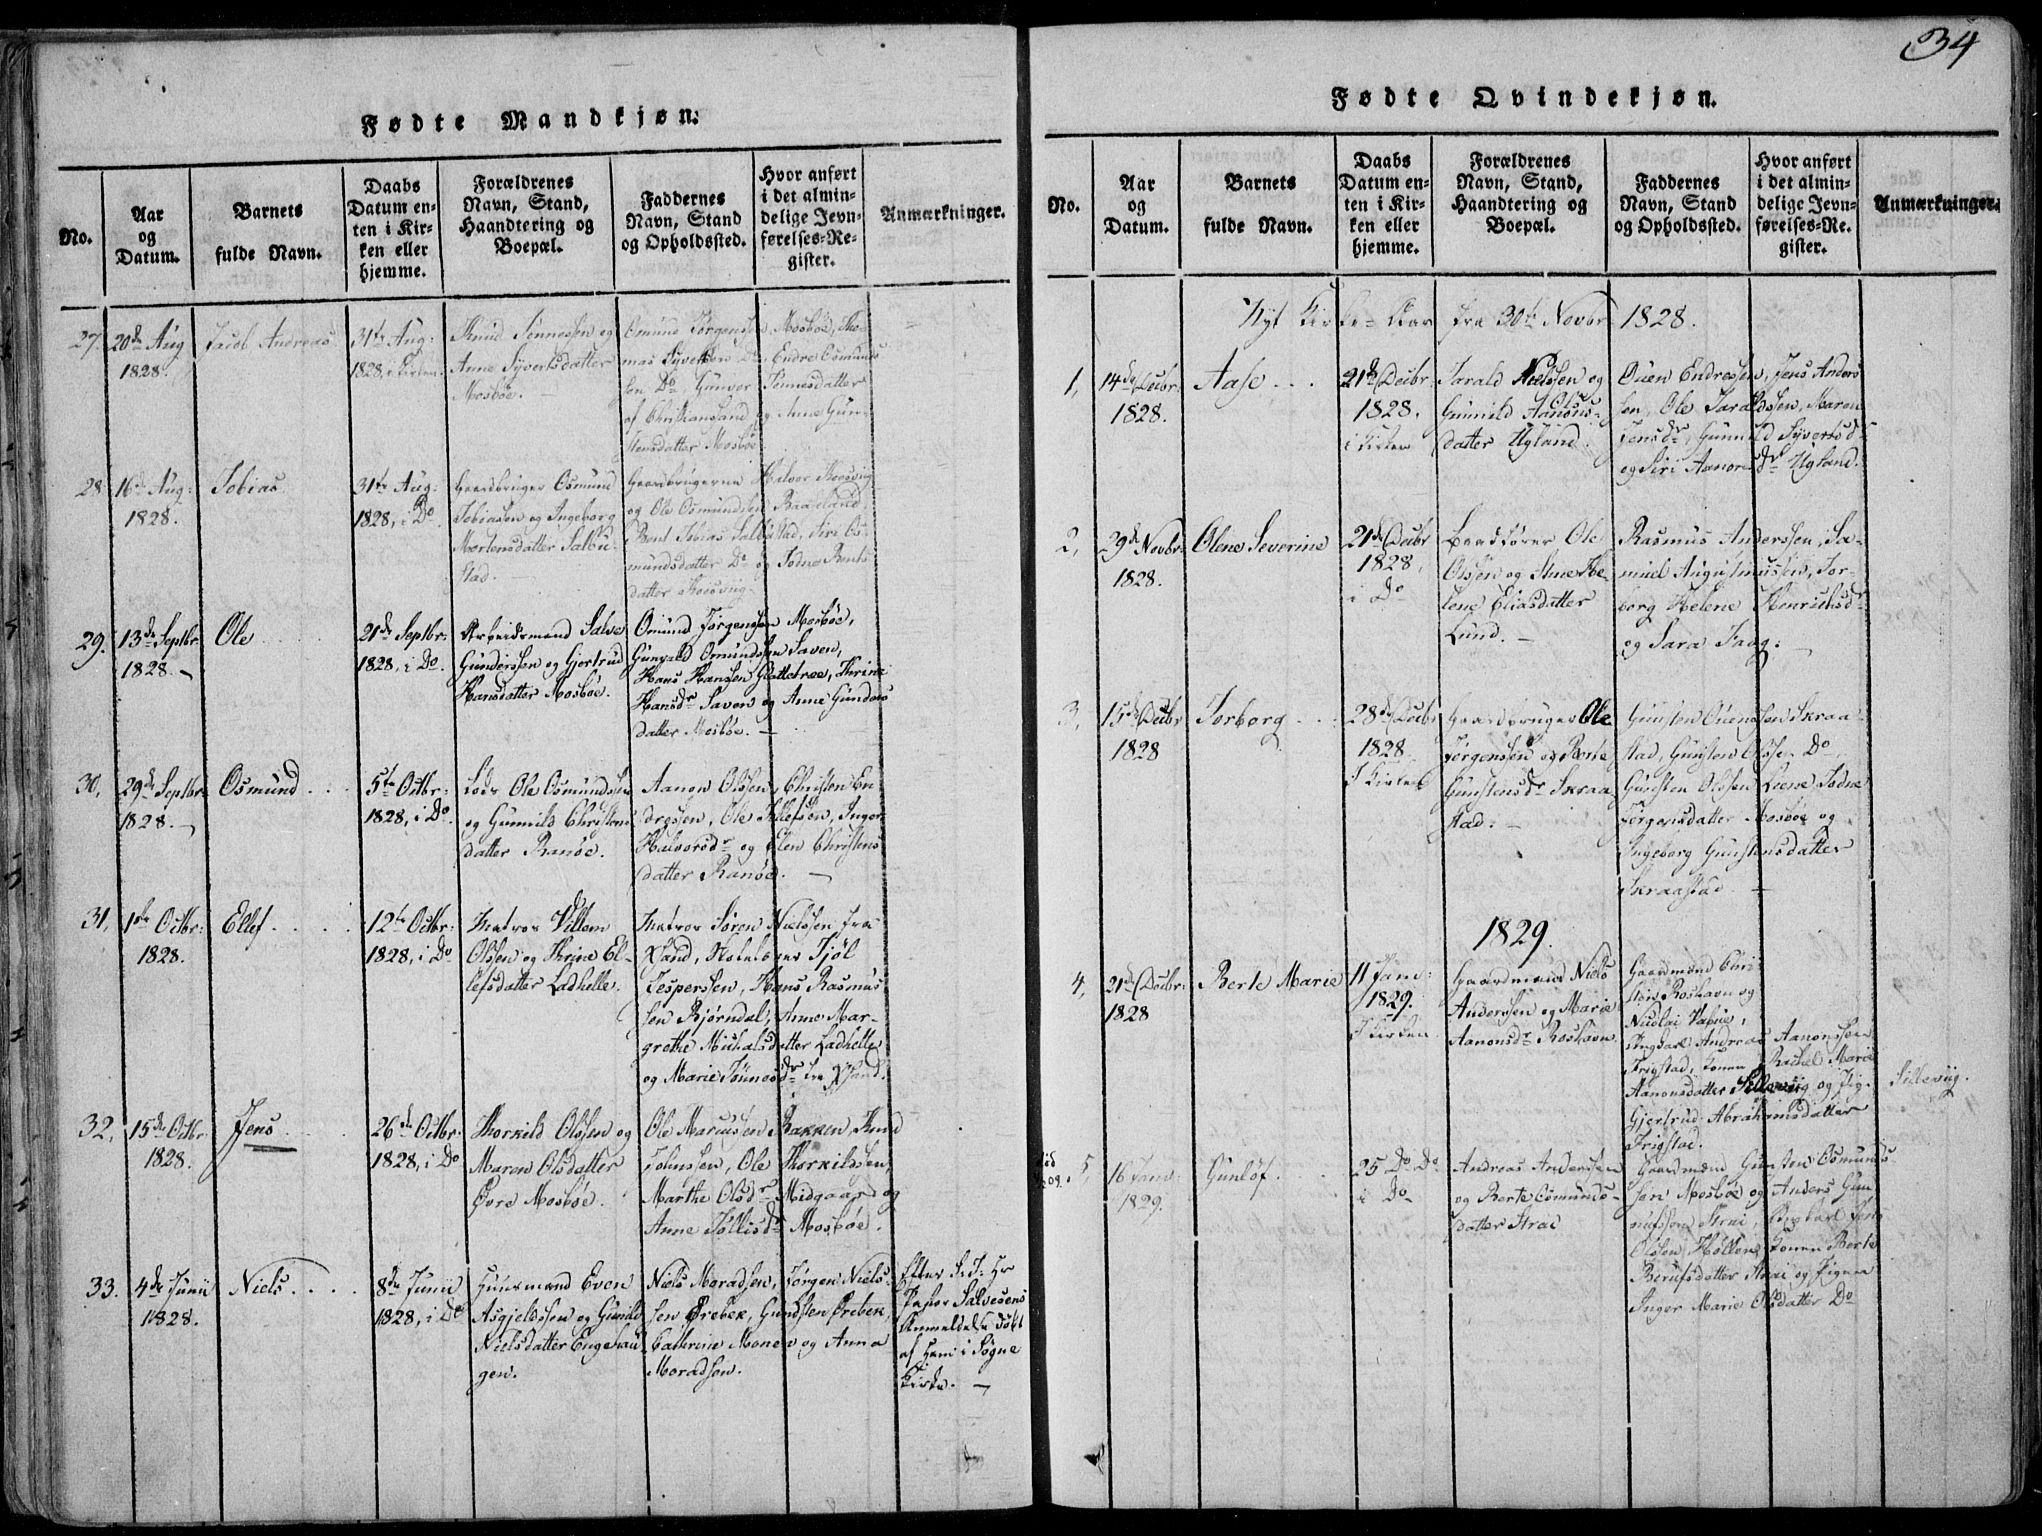 Fødte Mandkjøn.
No.
Aar
og
Datum.
Barnets
fulde Navn.
Daabs
Datum en-
ten i Kir-
ken eller
hjemme.
Forældrenes
Navn, Stand,
Haandtering og
Boepæl.
Faddernes
Navn, Stand
og Opholdssted.
Hvor anført
i det almin-
delige Jevn-
førelses-Re-
gister.
Anmærkninger.
27.
20de Aug
1828.
Jacob Andreas
31te Aug:
1828, i Kirken.
Knud Tønnessen og
Anne Syvertsdatter
Mosbøe.
Osmund Jørgensen Mosbøe, Tho-
mas Syvertsen Do, Endre Osmunds
sen Do Gunvor Tønnesdatter
af Christiansand og Anne Gun-
stensdatter Mosbøe
28
16de Aug:
1828.
Tobias
31te Aug:
1828, i Do
Gaardbruger Osmund
Tobiasen og Ingeborg
Mortensdatter Salbu-
stad.
Gaardbrugerne Halvor
og Ole Osmundsen Braaeland,
Bent Tobias Salbustad, Siri Os-
mundsdatter Do og Todne Bents
datter
29.
13de Septbr:
1828.
Ole
21de Septbr:
1828, i Do.
Arbeidsmand Salve
Gunderssen og Gjertrud
Hansdatter Mosbøe.
Osmund Jørgensen Mosbøe,
Gunvald Omundssen Saven,
Hans Hanssen Glattetræe, Thrine
Hansdr Saven og Anne Gunders
datter Mosbøe.
30,
29de Septbr:
1828.
Osmund
5te Octbr:
1828, i Do.
Lods Ole Osmundssen
og Gunnild Christens
datter Ranøe.
Aanon Olssen, Christen En
dressen, Ole Tellefsen, Inger
Halvorsdr og Elen Christens
datter Ranøe.
31,
1ste Octbr:
1828.
Ellef
12te Octbr:
1828, i Do
Matros Villem
Olssen og Thrine El-
lefsdatter Ladhelle.
Matros Søren Nielssen fra
Xsand, Tjøl
Jesperssen, Hans Rasmus
sen Bjørndal, Anne Mar-
grethe Michalsdatter Ladhelle
og Marie Tønnesdr fra Xsand.
32,
15de Octbr:
1828.
Jens
26de Octbr:
1828, i Do
Thorkild Olssen og
Maren Olsdatter
Øvre Mosbøe.
Ole Marcussen Bakken, Knud
Johnssen, Ole Thorkildssen,
Marthe Olsdr Midgaard og
Anne Tellisdr Mosbøe.
33.
4de Junii
1828.
Niels
8de Junii
1828, i Do
Huusmand Even
Asgjeldssen og Gunild
Nielsdatter Engehau
gen.
Niels Moradsen, Jørgen Niels-
sen Ørebek, Gundsten Ørebek,
Cathrine Monen og Anna
Moradsen.
Efter S. T. Hr
Pastor Salvesens
Anmeldelse døbt
af Ham i Søgne
Kirke.
34
Fødte Qvindekjøn.
No.
Aar
og
Datum.
Barnets
fulde Navn.
Daabs
Datum en-
ten i Kir-
ken eller
hjemme.
Forældrenes
Navn, Stand,
Haandtering og
Boepæl.
Faddernes
Navn, Stand
og Opholdssted.
Hvor anført
i det almin-
delige Jevn-
førelses-Re-
gister.
Anmærkninger.
Nyt Kirke-Aar fra 30te Novbr 1828.
1,
14de Decbr:
1828.
Aase
21de Decbr
1828.
i Kirken
Tarald Nielssen og
Gunnild Aanons-
datter Ugland.
Ouen Endressen, Jens Anders
sen, Ole Taraldssen, Maren
Jensdr, Gunnild Syvertsd
og Siri Aanonsdr Ugland.
2,
29de Novbr:
1828.
Olene Severine
21de Decbr
1828,
i Do
Ole
Olssen og Anne He-
lene Eliasdatter
Lund.
Rasmus Anderssen, Sa-
muel Augustinussen, Tor-
borg Helene Henrichsdr
og Sara Faag:
3,
15de Decbr
1828
Torborg
28de Decbr
1828
i Kirken
Gaardbruger Ole
Jørgenssen og Berte
Gunstensdr Skraa
stad.
Gunsten Ouenssen Skraa-
stad, Gunsten Olssen Do
Gunsten Olssen Liene, Todne
Jørgensdatter Mosbøe og
Ingeborg Gunstensdatter
Skraastad.
1829.
4,
21de Decbr:
1828
Berte Marie
11 Janr:
1829.
i Kirken
Gaardmand Niels
Anderssen og Marie
Aanonsdr Roshavn
Gaardmand Chri
sten Roshavn og
Nicolai Vabue,
Ungkarl Andreas Aanonssen
Frigstad, Konen Rachel Marie
Aanonsdatter Sillevig og Pig.
Gjertrud Abrahamsdatter
Frigstad.
Sillevig.
5,
16 Janr:
1829.
Gunlof
25 Do Do
i Do
Andreas Anderssen
og Berte Osmunds-
datter Strai
Gaardmænd Gunsten Osmunds-
sen Mosbøe og Anders Gun
nufssen Strai, Ungkarl Jens
Olssen Hollen, Konen Berte
Berufsdatter Strai og Pigen
Inger Marie Olsdatter Do